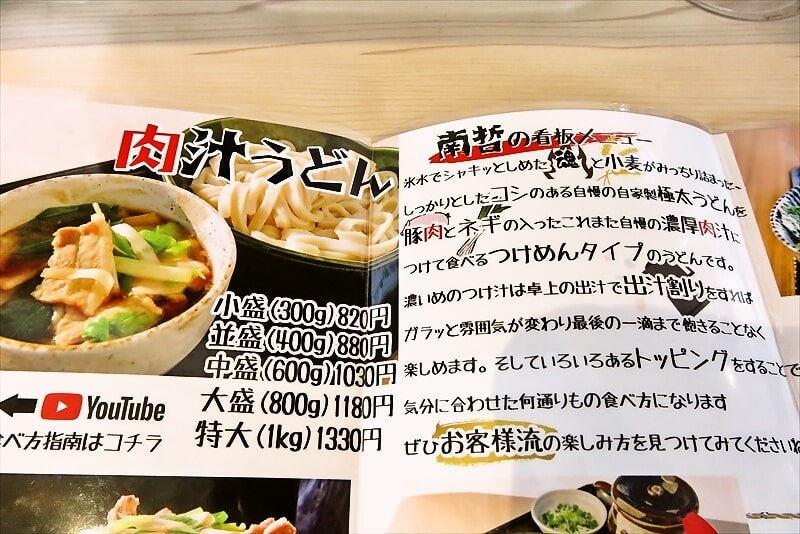 肉汁うどん
小盛(300g)820円
並盛(400g)880円
中盛(600g)1030円
大盛(800g)1180円
特大(1kg)1330円
YouTube
べ方指南はコチラ
南哲の看板メニュー
氷水でシャキッとしめた魂と小麦がみっちり詰まった~
しっかりとしたコシのある自慢の自家製極太うどんを
豚肉とネギの入ったこれまた自慢の濃厚肉汁に
つけて食べるつけめんタイプのうどんです。
濃いめのつけ汁は卓上の出汁で出汁割りをすれば
ガラッと雰囲気が変わり最後の一滴まで飽きることなく
楽しめます。そしていろいろあるトッピングをすることで
気分に合わせた何通りもの食べ方になります
ぜひお客様流の楽しみ方を見つけてみてくださいね